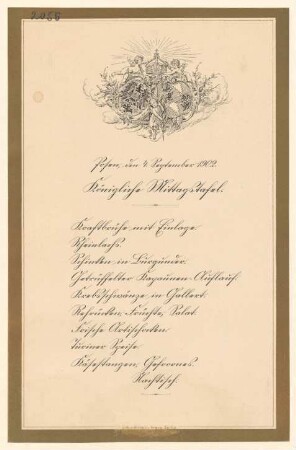 Posen, den 4. September 1902.
Königliche Mittagstafel.
Kraftbrühe mit Einlage
Rheinlachs.
Schinken in Burgunder.
Getrüffelter Kapaunen-Auflauf
Krebsschwänze in Gallert.
Rehrücken, Früchte, Salat.
Frische Artischocken
Turiner Speise
Käsestangen, Gefrornes.
Nachtisch.